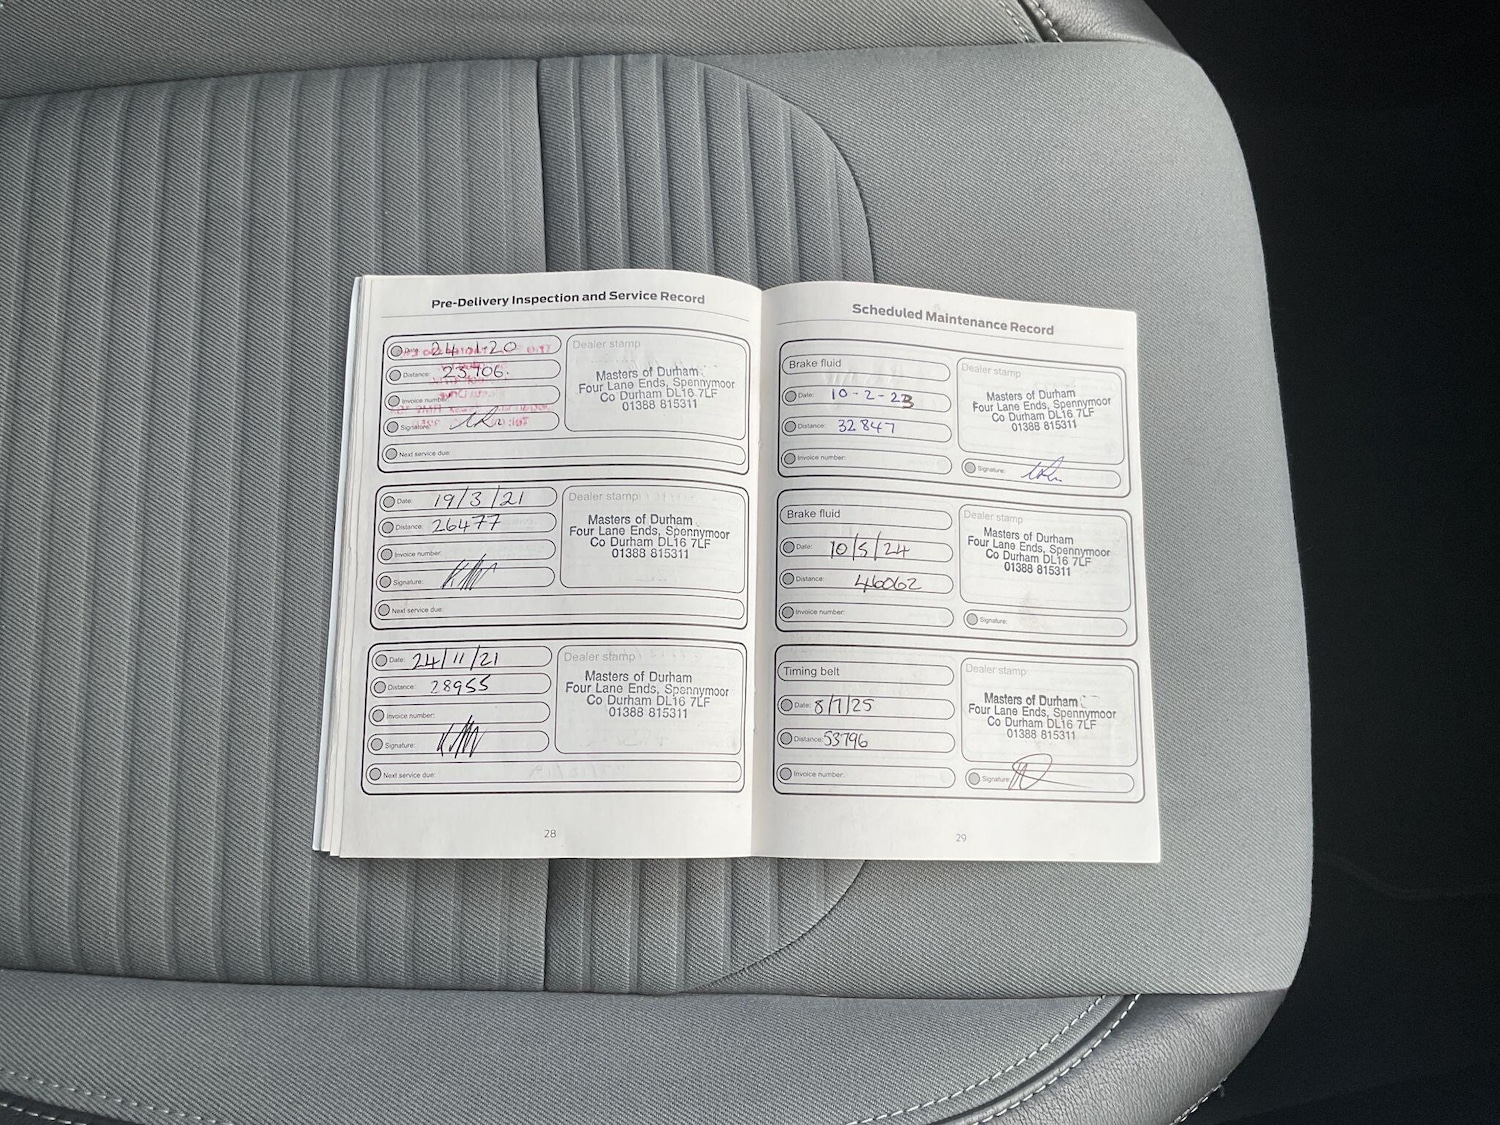 Pre-Delivery Inspection and Service Record
Date: 24-1-20
Distance: 23,706.
Invoice number:
Signature:
Next service due:
Dealer stamp
Masters of Durham
Four Lane Ends, Spennymoor
Co Durham DL16 7LF
01388 815311
Date: 19/3/21
Distance: 26477
Invoice number:
Signature:
Next service due:
Dealer stamp
Masters of Durham
Four Lane Ends, Spennymoor
Co Durham DL16 7LF
01388 815311
Date: 24/11/21
Distance: 28955
Invoice number:
Signature:
Next service due:
Dealer stamp
Masters of Durham
Four Lane Ends, Spennymoor
Co Durham DL16 7LF
01388 815311
28
Scheduled Maintenance Record
Brake fluid
Date: 10-2-23
Distance: 32847
Invoice number:
Dealer stamp
Masters of Durham
Four Lane Ends, Spennymoor
Co Durham DL16 7LF
01388 815311
Signature:
Brake fluid
Date: 10/5/24
Distance: 46062
Invoice number:
Dealer stamp
Masters of Durham
Four Lane Ends, Spennymoor
Co Durham DL16 7LF
01388 815311
Signature:
Timing belt
Date: 8/7/25
Distance: 53796
Invoice number:
Dealer stamp
Masters of Durham
Four Lane Ends, Spennymoor
Co Durham DL16 7LF
01388 815311
Signature:
29